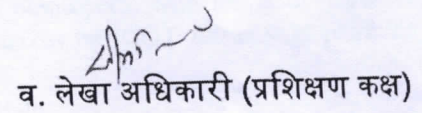 व. लेखा अधिकारी (प्रशिक्षण कक्ष)